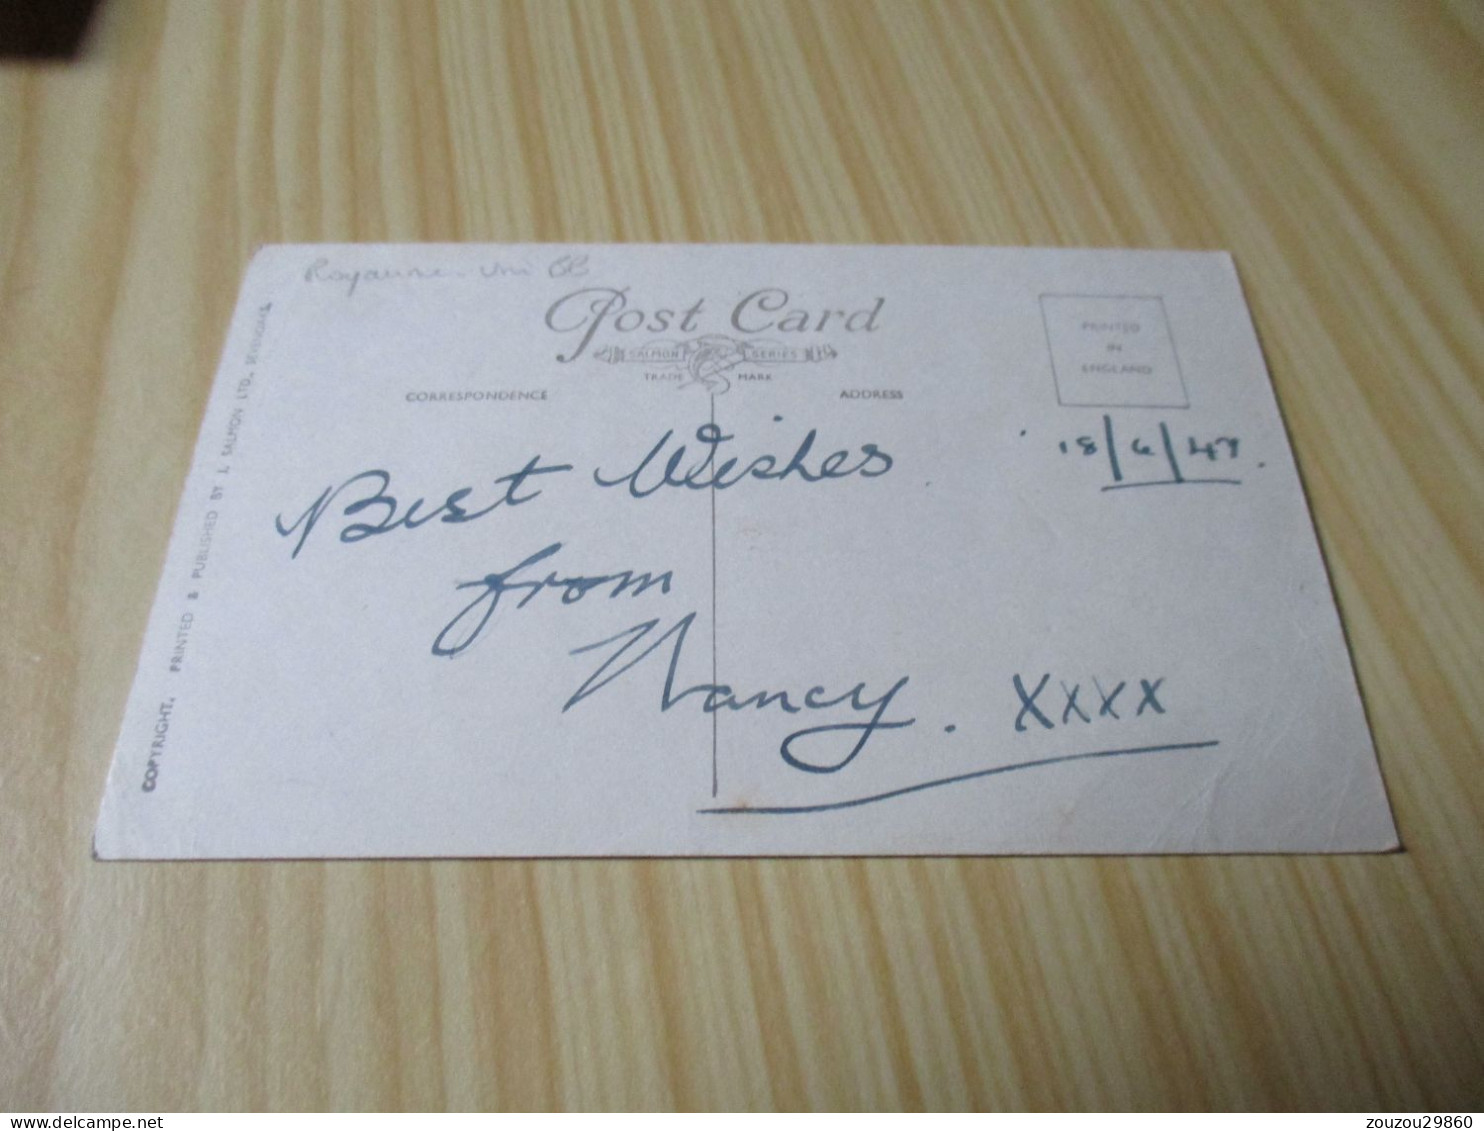 Royaume-Uni BB
Post Card
SALMON SERIES
TRADE MARK
CORRESPONDENCE
ADDRESS
PRINTED
IN
ENGLAND
18/6/47.
Best Wishes
from
Nancy. XXXX
COPYRIGHT. PRINTED & PUBLISHED BY J. SALMON LTD., SEVENOAKS
zouzou29860